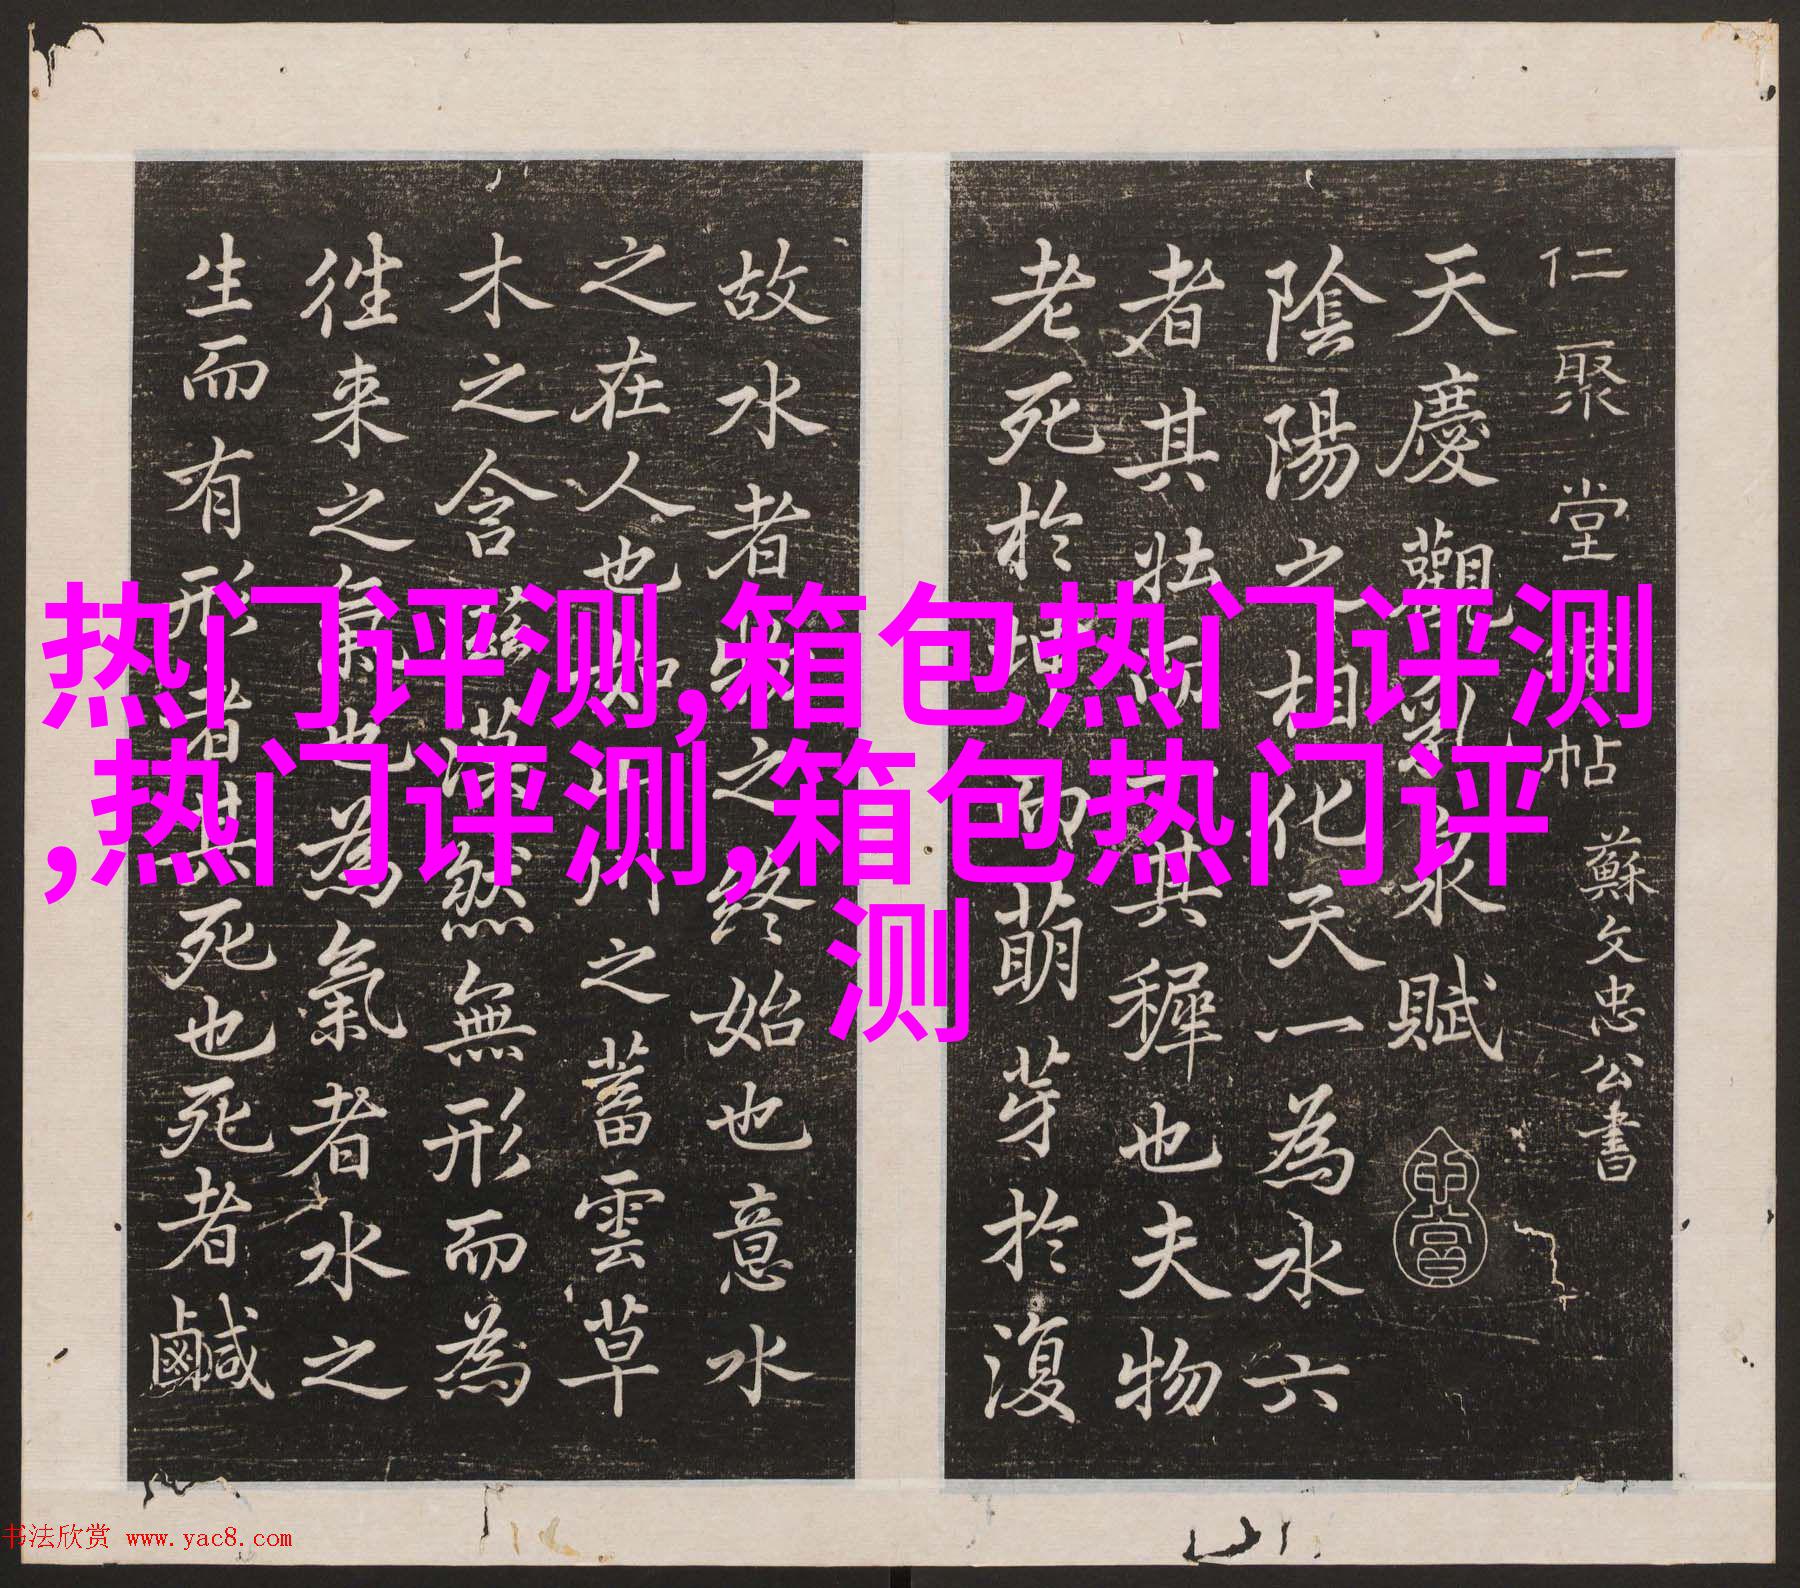 热门评测,箱包热门评测
,热门评测,箱包热门评
测
仁聚堂法帖 蘇文忠公書
天慶觀乳泉賦
陰陽之相化天一為水六
者其壯而其穉也夫物
老死於坤而萌芽於復
故水者物之終始也意水
之在人也如山川之蓄雲草
木之含滋漠然無形而為
往来之氣也為氣者水之
生而有形者其死也死者鹹
书法欣赏 www.yac8.com